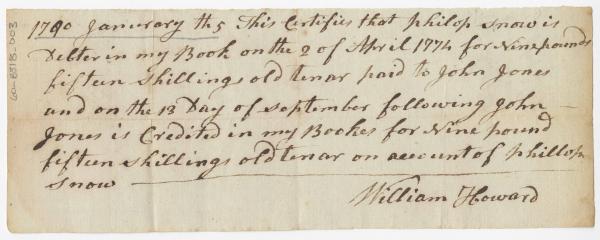 1790 Janurary th 5 This Certifies that philop Snow is
Debter in my Book on the 2 of April 1774 for Nine pounds
fifteen Shillings old tenar paid to John Jones
and on the 13 Day of September following John
Jones is Credited in my Bookes for Nine pound
fifteen Shillings old tenar on account of phillop
Snow
William Howard
60-8318-003